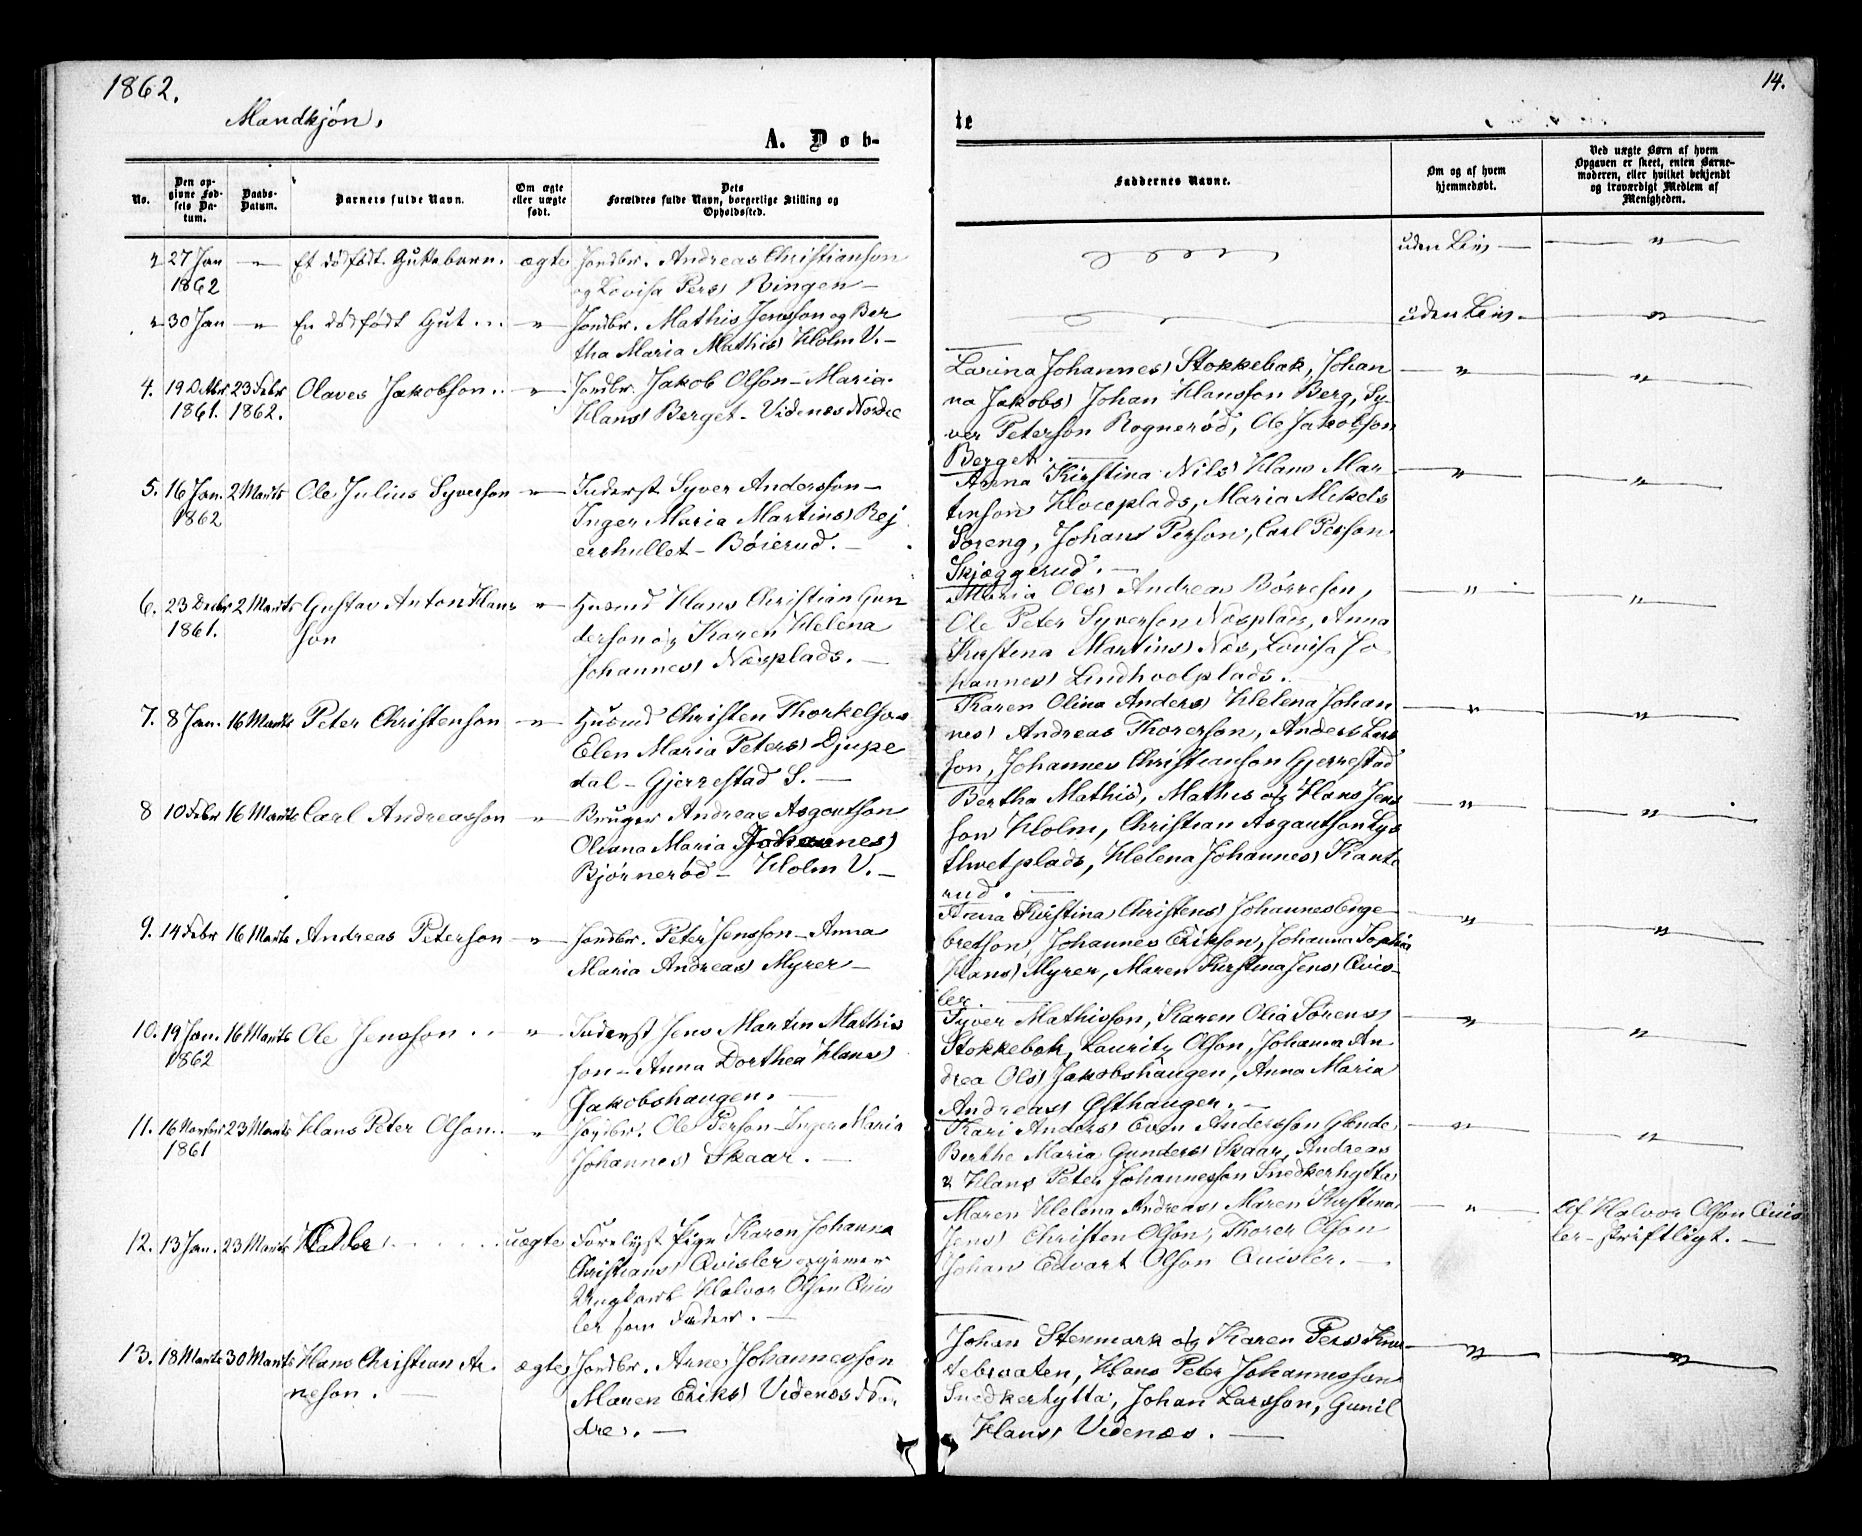 1862.
14.
Mandkjøn.
A. Døb-
te
No.
Den op-
givne Fød-
sels Da-
tum.
Daabs-
Datum.
Barnets fulde Navn.
Om ægte
eller uægte
født.
Dets
Forældres fulde Navn, borgerlige Stilling og
Opholdssted.
Faddernes Navne.
Om og af hvem
hjemmedøbt.
Ved uægte Børn af hvem
Opgaven er skeet, enten Barne-
moderen, eller hvilket bekjendt
og troværdigt Medlem af
Menigheden.
27 Jan " Et dødfødt Guttebarn. ægte Jordbr. Andreas Christianson uden Liv "
1862 og Lovisa Pers) Ringen
30 Jan " En dødfødt Gut " Jordbr. Mathis Jensson og Ber uden Liv "
tha Maria Mathis) Holm V.
4. 19 Dcbr 23 Febr Olaves Jakobson. " Jordbr. Jakob Olson - Maria
1861. 1862. Hans) Berget - Videnæs Nordre
Larina Johannes) Stokkebæk, Johan " "
na Jakobs) Johan Hansson Berg, Sy-
ver Peterson Rognerød, Ole Jakobson
Berget.
5. 16 Jan. 2 Marts Ole Julius Syverson " Inderst Syver Andersson -
1862 Inger Maria Martins) Rej
ershullet - Bøierud. -
Arena Kirstina Nils) Hans Mar " "
tinson Hoceplads, Maria Mikels
Soreng, Johans Person, Carl Person
Skjæggerud. -
6. 23 Decbr 2 Marts Gustav Anton Hans " Husmd Hans Christian Gun
1861. son derson og Karen Helena
Johannes) Næsplads. -
Maria Ols) Andreas Børreson, " "
Ole Peter Syverson Næsplads, Anna
Kirstina Martins) Næs, Lovisa Jo
hannes) Lindhoolplads.
7. 8 Jan. 16 Marts Peter Christenson " Husmd Christen Thorkelson
Elen Maria Peters) Djupe
dal - Gjerrestad S. -
Karen Olina Anders) Helena Johan " "
nes) Andreas Thorerson, Anders Lars
son, Johannes Christianson Gjerrestad
8 10 Febr 16 Marts Carl Andreasson " Bruger Andreas Asgautson
Oliana Maria Johannes)
Bjørnerød - Holm V. -
Bertha Mathis), Mathis og Hans Jens " "
son Holm, Christian Asgautson Lys
thvetplads, Helena Johannes) Kante
rud. -
9. 14 Febr 16 Marts Andreas Peterson " Jordbr. Peter Jensson - Anna
Maria Andreas) Myrer -
Anna Kirstina Christens) Johannes Enge " "
bretson, Johannes Erikson, Johanna Sophia
Hans) Myrer, Maren Kirstina Jens) Qvis-
ler. -
10. 19 Jan. 16 Marts Ole Jensson " Inderst Jens Martin Mathis
1862 son - Anna Dorthea Hans)
Jakobshaugen. -
Syver Mathisson, Karen Olia Sørens) " "
Stokkebæk, Lauritz Olson, Johanna An
drea Ols) Jakobshaugen, Anna Maria
Andreas) Østhaugen. -
11. 16 Novbr 23 Marts Hans Peter Olson. " Jordbr. Ole Person - Inger Maria
1861 Johannes) Skaar. -
Kari Anders) Even Andersson Glende, " "
Berthe Maria Gunders) Skaar, Andreas
& Hans Peter Johannesson Snedkerhytta
12. 13 Jan. 23 Marts uægte Forelyst Pige Karen Johanna
Christians) Qvisler opgiver
Ungkarl Halvor Olson Qvis
ler som Fader. -
Maren Helena Andreas) Maren Kirstina " Af Halvor Olson Qvis
Jens) Christen Olson, Thorer Olson ler - skriftligt. -
Johan Edvart Olson Qvisler. -
13. 18 Marts 30 Marts Hans Christian Ar. ægte Jordbr. Arne Johannesson
neson. Maren Eriks) Videnæs Sø.
dre. -
Johan Stenmark og Karen Pers) " "
tebraaten, Hans Peter Johannesson
Snedkerhytta, Johan Larsson, Gunil
Hans) Videnæs. -